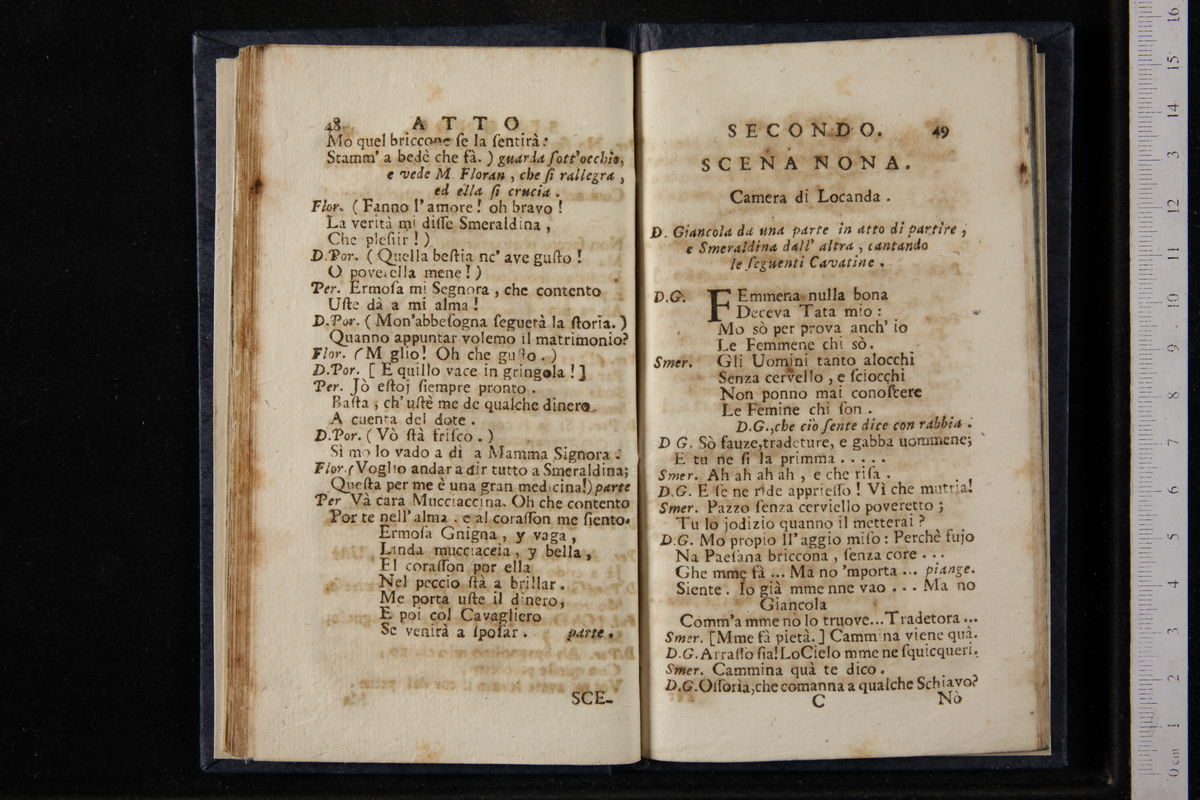 48 ATTO
Mo quel briccone ſe la ſentirà:
Stamm' a bedè che fà. ) guarda ſott'occhio,
e vede M Floran , che ſi rallegra ,
ed ella ſi crucia .
Flor. ( Fanno l'amore ! oh bravo !
La verità mi diſſe Smeraldina ,
Che pleſiir ! )
D.Por. ( Quella beſtia nc' ave guſto !
O poverella mene ! )
Per. Ermoſa mi Segnora , che contento
Uſte dà a mi alma !
D.Por. ( Mon'abbeſogna ſeguetà la ſtoria. )
Quanno appuntar volemo il matrimonio?
Flor. ( M glio! Oh che guſto . )
D.Por. [ E quillo vace in gringola ! ]
Per. Jò eſtoj ſiempre pronto .
Baſta , ch' uſtè me de qualche dinero.
A cuenta del dote .
D.Por. ( Vò ſtà friſco . )
Sì mo lo vado a dì a Mamma Signora .
Flor. ( Voglio andar a dir tutto a Smeraldina;
Queſta per me è una gran medicina!) parte
Per Và cara Mucciaccina. Oh che contento
Por te nell'alma . e al coraſſon me ſiento.
Ermoſa Gnigna , y vaga ,
Linda mucciaceia , y bella ,
El coraſſon por ella
Nel peccio ſtà a brillar .
Me porta uſte il dinero,
E poi col Cavagliero
Se venirà a ſpoſar . parte .
SCE-
SECONDO. 49
SCENA NONA.
Camera di Locanda .
D. Giancola da una parte in atto di partire ,
e Smeraldina dall' altra , cantando
le ſeguenti Cavatine .
D.G. FEmmena nulla bona
Deceva Tata mio :
Mo sò per prova anch' io
Le Femmene chi sò .
Smer. Gli Uomini tanto alocchi
Senza cervello , e ſciocchi
Non ponno mai conoſcere
Le Femine chi ſon .
D.G.,che ciò ſente dice con rabbia .
D G. Sò fauze,tradeture, e gabba uommene;
E tu ne ſi la primma . . . . .
Smer. Ah ah ah ah , e che riſa .
D.G. E ſe ne ride apprieſſo ! Vì che mutria!
Smer. Pazzo ſenza cerviello poveretto ;
Tu lo jodizio quanno il metterai ?
D.G. Mo propio ll' aggio miſo : Perchè fujo
Na Paeſana briccona , ſenza core . . .
Ghe mme fà ... Ma no 'mporta ... piange.
Siente . Io già mme nne vao . . . Ma no
Giancola
Comm'a mme no lo truove...Tradetora ...
Smer. [Mme fà pietà. ] Cammina viene quà.
D.G. Arraſſo ſia! LoCielo mme ne ſquicqueri.
Smer. Cammina quà te dico .
D.G. Oſſoria,che comanna a qualche Schiavo?
C Nò